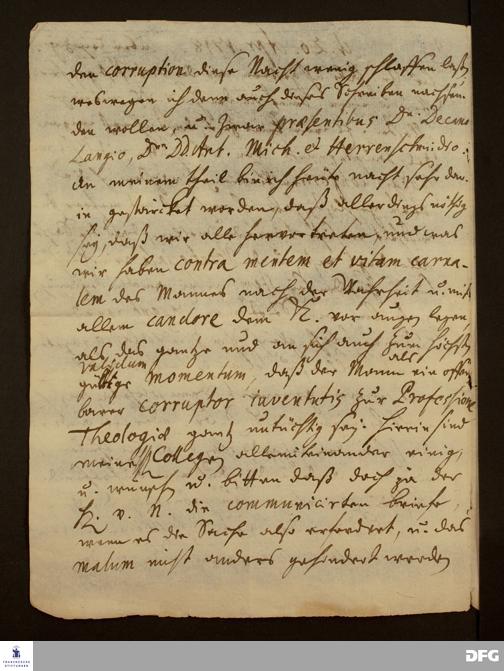 der corruption diese Nacht wenig schlaffen laßen
weswegen ich denn auch dieses Schreiben nachsen-
den wollen, u. zwar præsentibus Dn. Decano
Langio, Dnn DD. Ant. Mich. et Herrenschmidio.
An meinem theil bin ich heute nacht sehr dar-
in gestärcket worden, daß allerdings nöthig
sey, daß wir alle hervortreten, und was
wir haben contra mentem et vitam carna-
lem des Mannes nach der Wahrheit u. mit
allem candore dem K. vor augen legen,
als das gantze und an sich auch zum höchsten
validum
gültige momentum, daß der Mann als ein offen-
barer corruptor iuventutis zur Professione
Theologiæ gantz untüchtig sey. Hierin sind
meine Collegen alle miteinander einig,
u. wünschen u. bitten daß doch ja der
H. v. N. die communicirten briefe,
wenn es die Sache also erfordert, u. das
malum nicht anders gehindert werden
FRANCKESCHE STIFTUNGEN
DFG